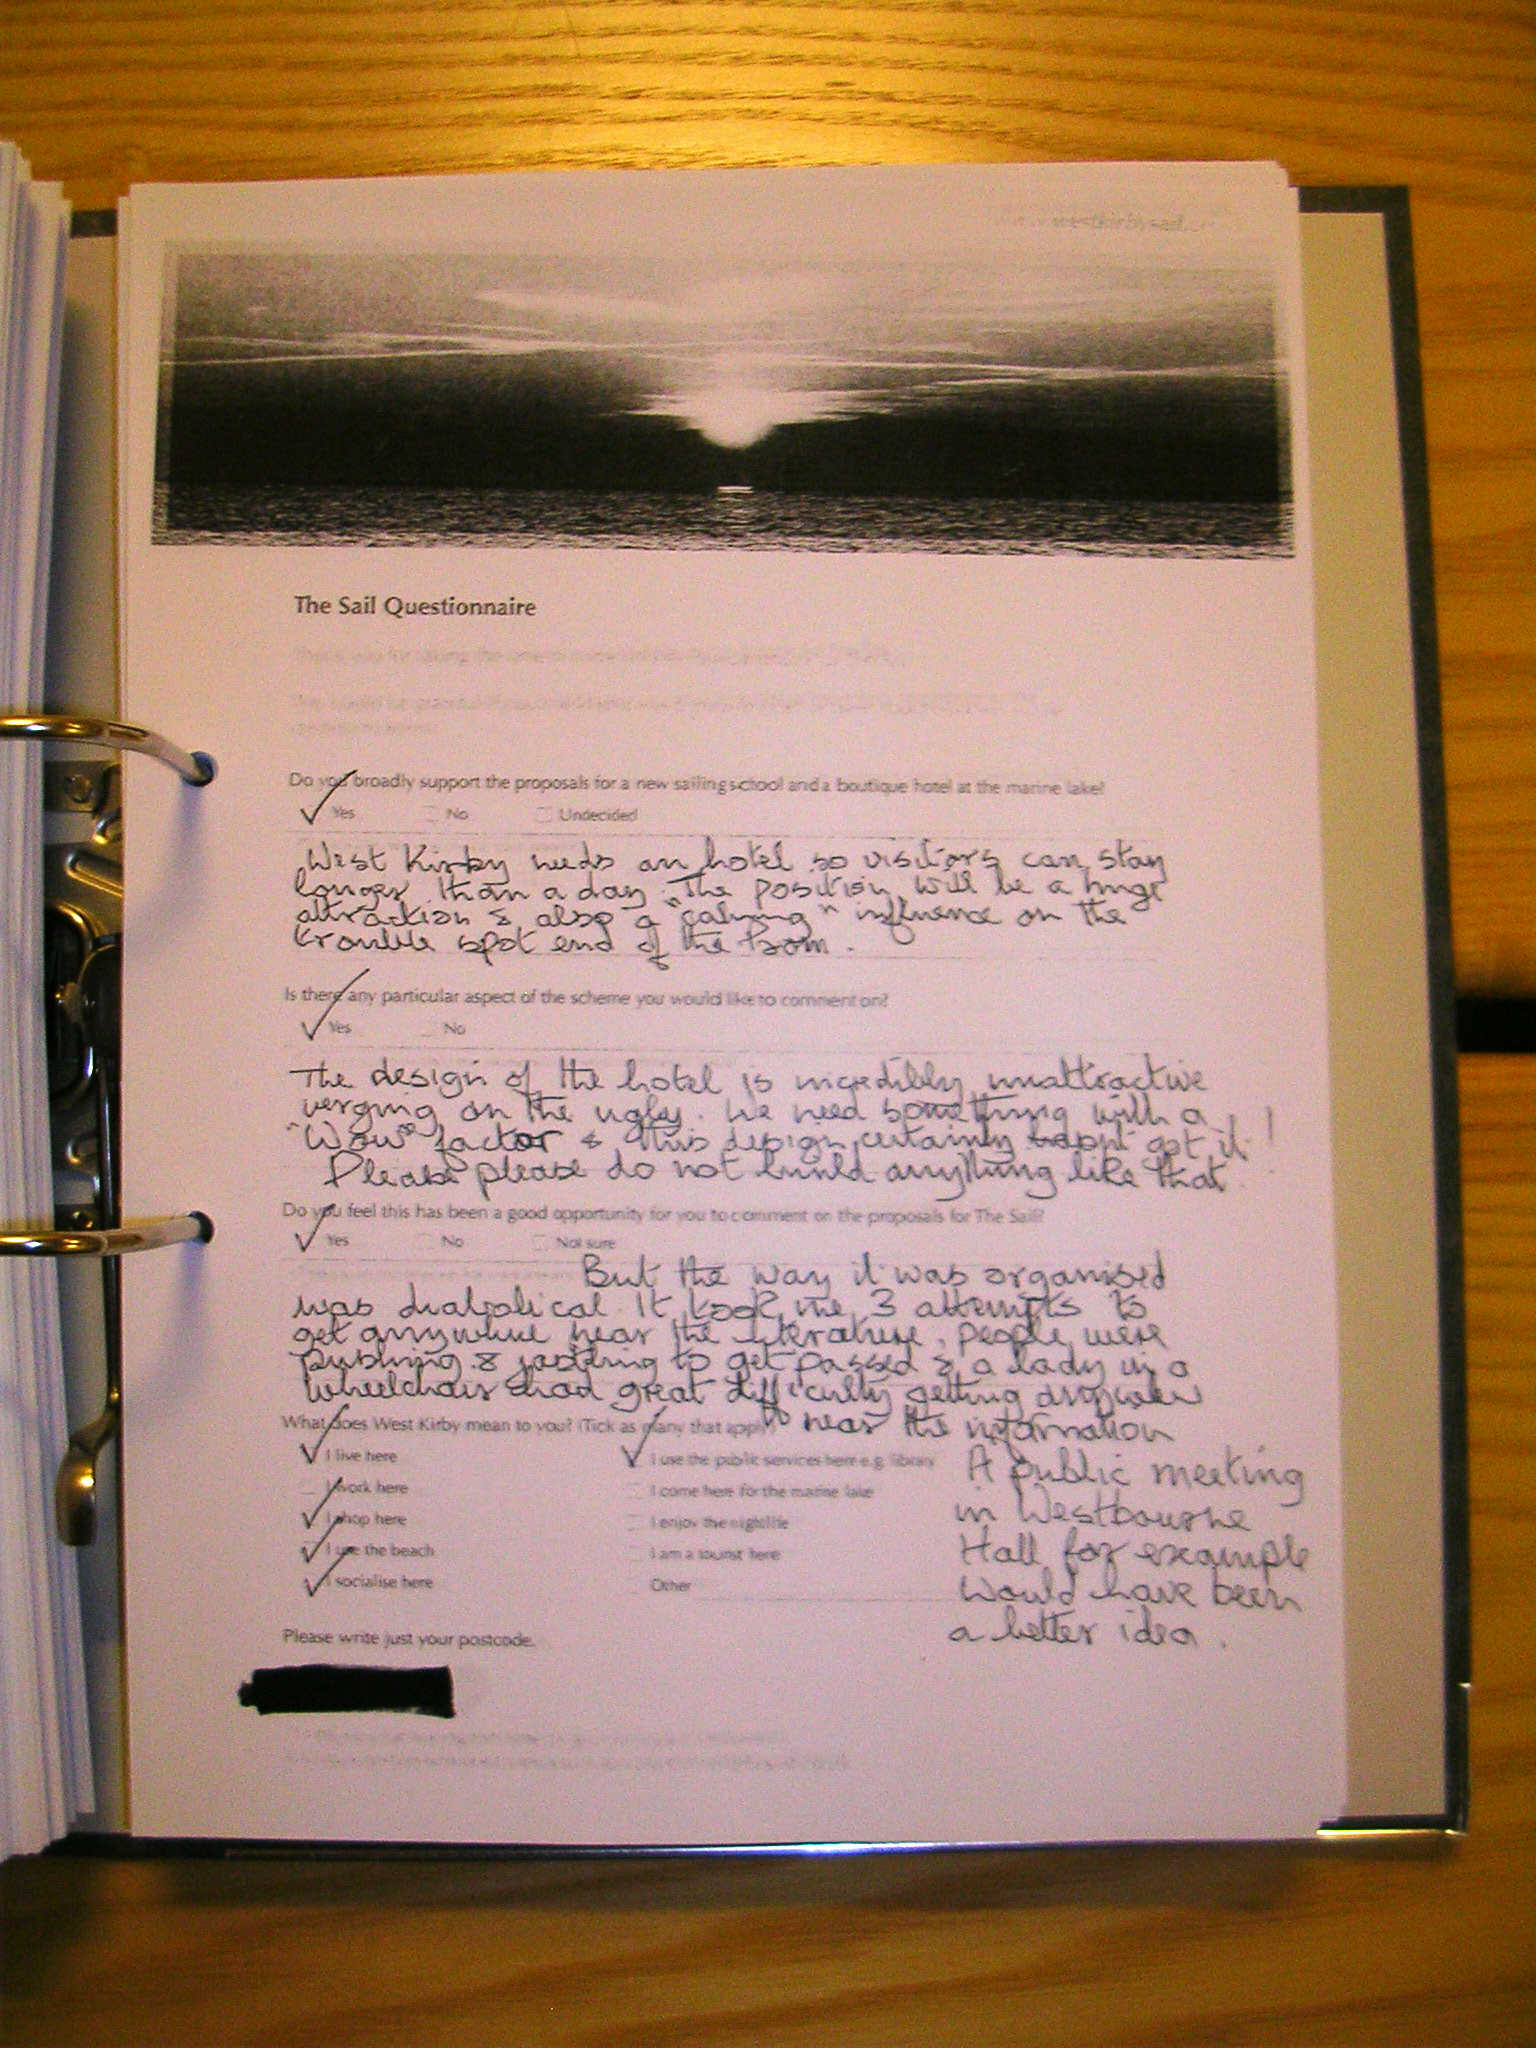 westkirbysail
The Sail Questionnaire
Do you broadly support the proposals for a new sailing school and a boutique hotel at the marine lake?
Yes No Undecided
West Kirby needs an hotel so visitors can stay
longer than a day. The position will be a huge
attraction & also a "calming" influence on the
trouble spot end of the prom.
Is there any particular aspect of the scheme you would like to comment on?
Yes No
The design of the hotel is incredibly unattractive
verging on the ugly. We need something with a
"Wow" factor & this design certainly hasn't got it!
Please please do not build anything like that.
Do you feel this has been a good opportunity for you to comment on the proposals for The Sail?
Yes No Not sure
But the way it was organised
was diabolical. It took me 3 attempts to
get anywhere near the literature, people were
pushing & jostling to get passed & a lady in a
wheelchair had great difficulty getting anywhere
What does West Kirby mean to you? (Tick as many that apply) near the information
I live here I use the public services here e.g. library A public meeting
I work here I come here for the marine lake in Westbourne
I shop here I enjoy the nightlife
I use the beach I am a tourist here Hall for example
I socialise here Other would have been
Please write just your postcode. a better idea.